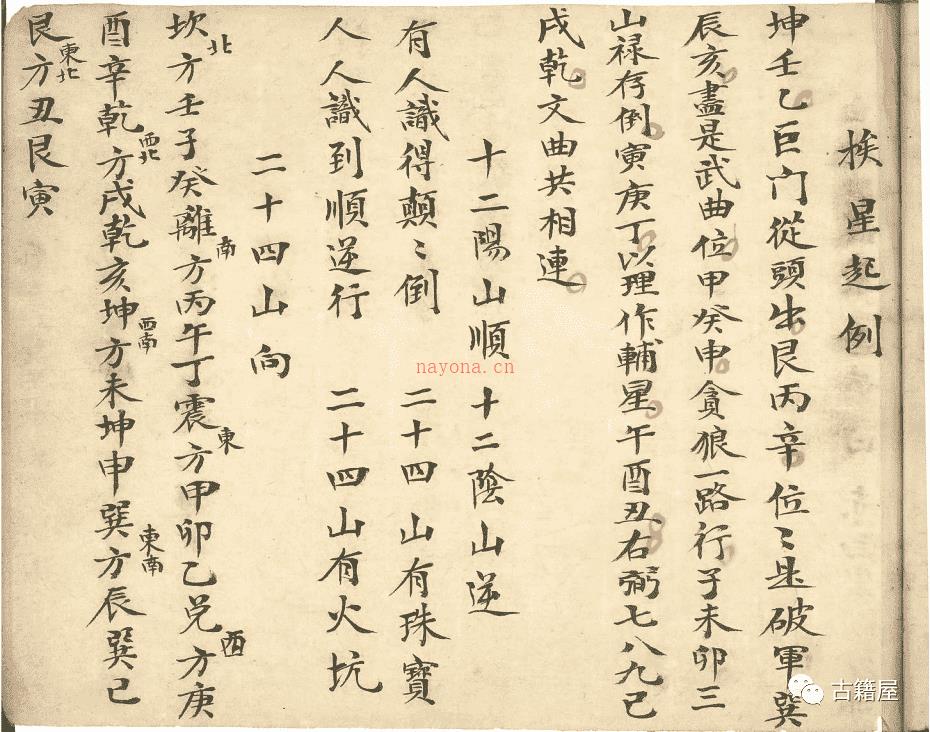 挨星起例
坤壬乙巨门從頭出艮丙辛位〻是破軍巽
辰亥盡是武曲位甲癸申貪狼一路行子未卯三
山禄存倒寅庚丁以理作輔星午酉丑右弼七八九巳
戌乾文曲共相連
十二陽山順 十二陰山逆
有人識得顛〻倒 二十四山有珠寶
人人識到順逆行 二十四山有火坑
二十四山向
坎北方壬子癸離南方丙午丁震東方甲卯乙兑西方庚
酉辛乾西北方戌乾亥坤西南方未坤申巽東南方辰巽巳
艮東北方丑艮寅
nayona.cn
古籍屋